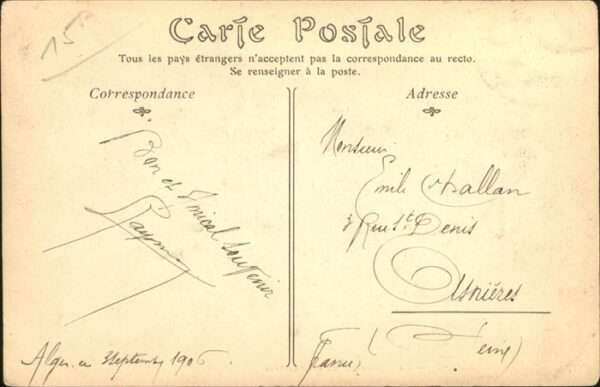 15
Carte Postale
Tous les pays étrangers n'acceptent pas la correspondance au recto.
Se renseigner à la poste.
Correspondance
Adresse
Bon et Amical Souvenir
Raymond
Alger le Septembre 1906
Monsieur
Emile Challan
3 Rue St Denis
Asnières
(Seine)
France